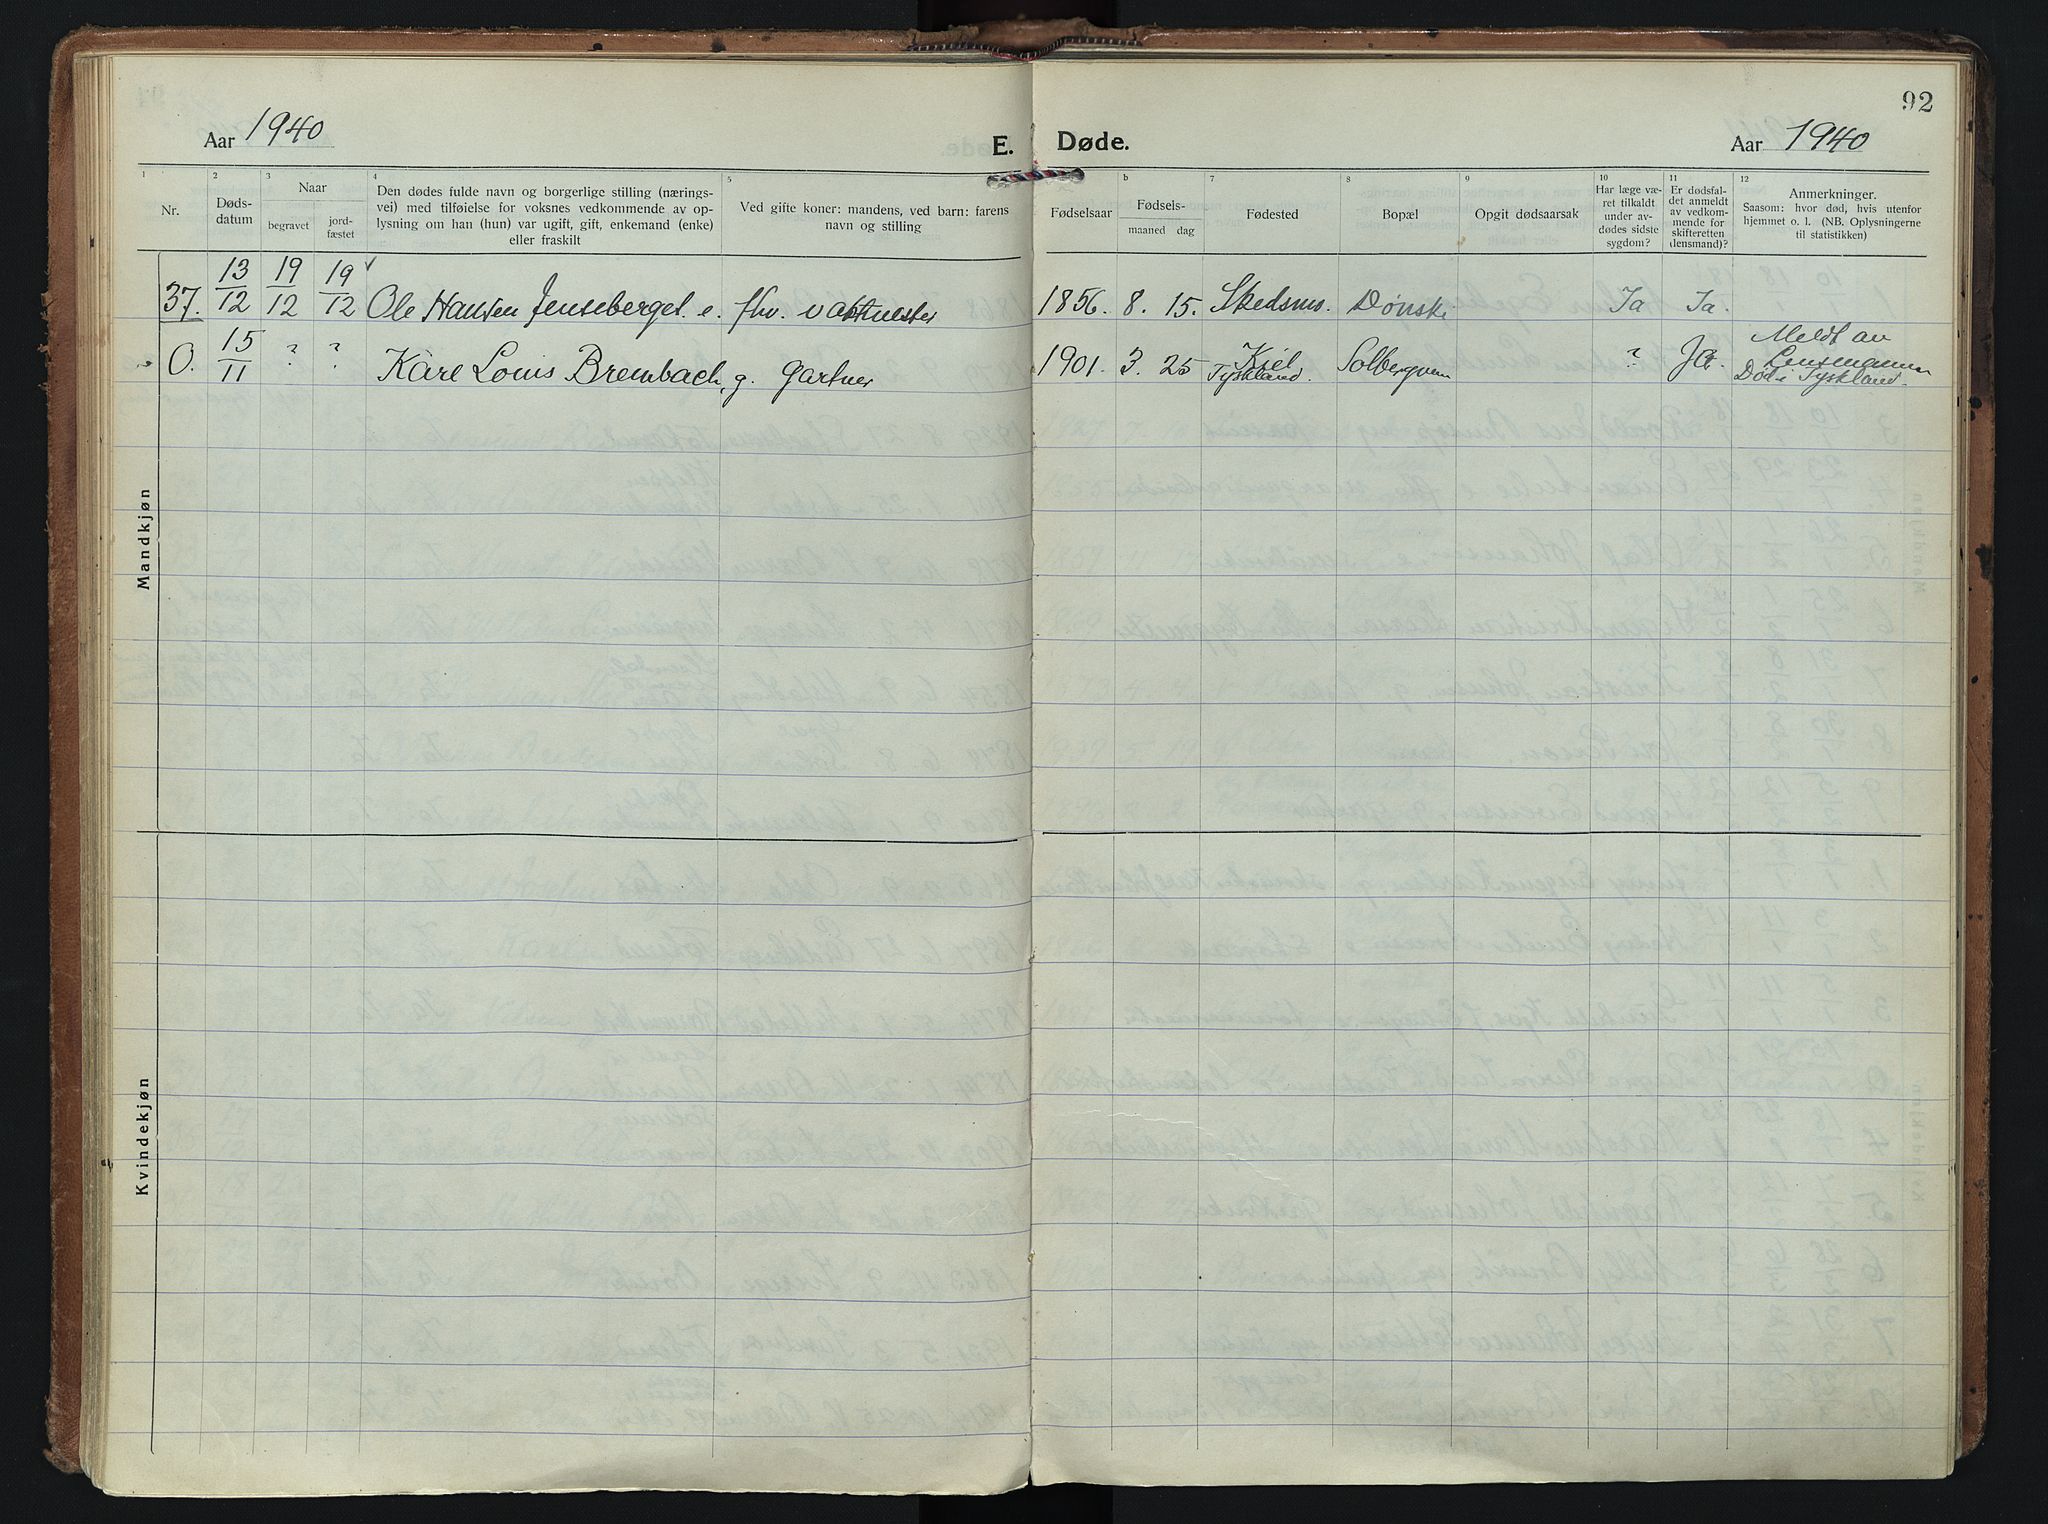 92
Aar 1940
E.
Døde.
Aar 1940
1
2
3
4
5
6
7
8
9
10
11
12
Nr.
Døds-
datum
Naar
begravet
jord-
fæstet
Den dødes fulde navn og borgerlige stilling (nærings-
vei) med tilføielse for voksnes vedkommende av op-
lysning om han (hun) var ugift, gift, enkemand (enke)
eller fraskilt
Ved gifte koner: mandens, ved barn: farens
navn og stilling
Fødselsaar
Fødsels-
maaned dag
Fødested
Bopæl
Opgit dødsaarsak
Har læge væ-
ret tilkaldt
under av-
dødes sidste
sygdom?
Er dødsfal-
det anmeldt
av vedkom-
mende for
skifteretten
(lensmand)?
Anmerkninger.
Saasom: hvor død, hvis utenfor
hjemmet o. l. (NB. Oplysningerne
til statistikken)
37. 13/12 19/12 19/12 Ole Hansen Jenseberget. e. fhv. vaktmester 1856. 8. 15. Skedsmo. Dønski Ja Ja.
O. 15/11 ? ? Kare Louis Brembach, g. gartner 1901. 3. 25 Kiel
Tyskland. Solbergveien ? Ja Meldt av
Lensmannen
Død i Tyskland.
Mandkjøn
Kvindekjøn